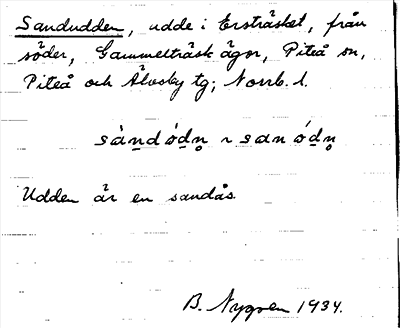 Sandudden, udde i Ersträsket, från
söder, Gammelträsk ägor, Piteå sn,
Piteå och Älvsby tg; Norrb. l.
sàndód̥n̥ ~ san ód̥n̥
Udden är en sandås.
B. Nygren 1934.